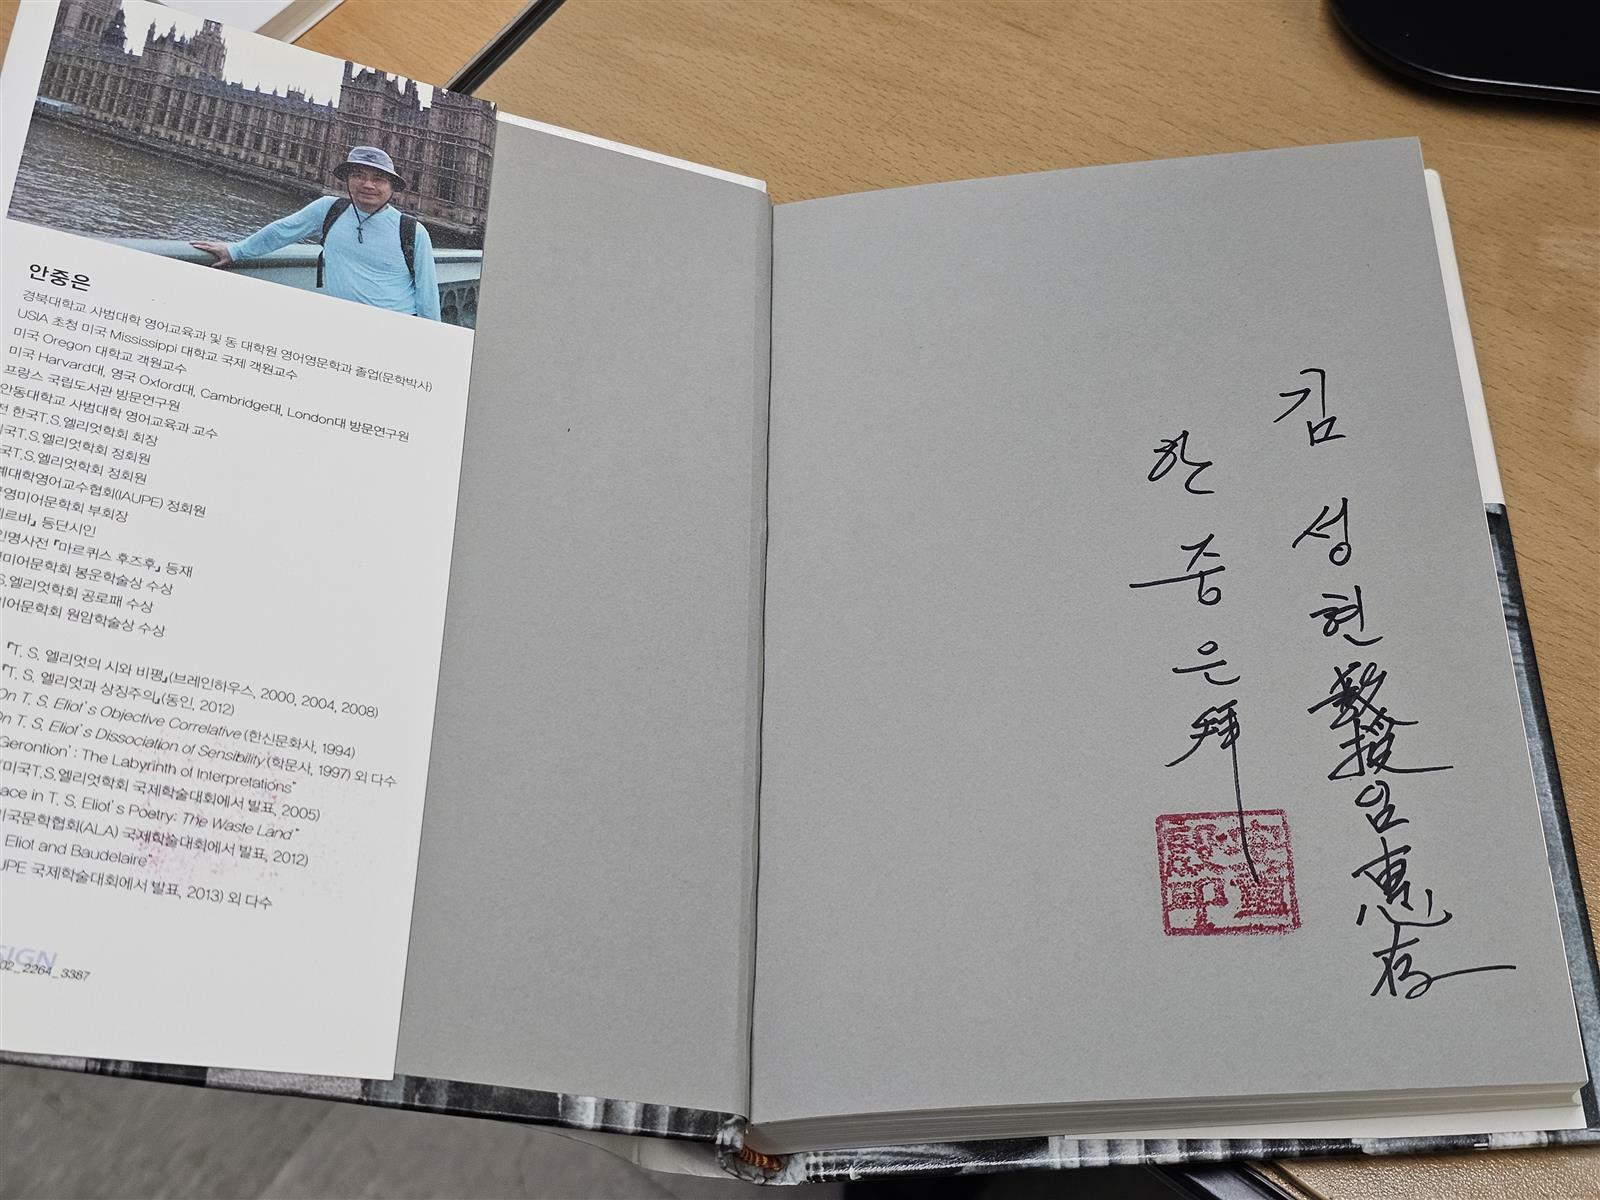 안중은
경북대학교 사범대학 영어교육과 및 동 대학원 영어영문학과 졸업(문학박사)
USIA 초청 미국 Mississippi 대학교 국제 객원교수
미국 Oregon 대학교 객원교수
미국 Harvard대, 영국 Oxford대, Cambridge대, London대 방문연구원
프랑스 국립도서관 방문연구원
안동대학교 사범대학 영어교육과 교수
전 한국T.S.엘리엇학회 회장
국T.S.엘리엇학회 정회원
국T.S.엘리엇학회 정회원
계대학영어교수협회(IAUPE) 정회원
영미어문학회 부회장
르바』 등단시인
인명사전 『마르퀴스 후즈후』 등재
미어문학회 봉운학술상 수상
S.엘리엇학회 공로패 수상
미어문학회 원암학술상 수상
『T. S. 엘리엇의 시와 비평』(브레인하우스, 2000, 2004, 2008)
『T. S. 엘리엇과 상징주의』(동인, 2012)
On T. S. Eliot's Objective Correlative (한신문화사, 1994)
On T. S. Eliot's Dissociation of Sensibility (학문사, 1997) 외 다수
Gerontion': The Labyrinth of Interpretations"
(미국T.S.엘리엇학회 국제학술대회에서 발표, 2005)
ace in T. S. Eliot's Poetry: The Waste Land"
미국문학협회(ALA) 국제학술대회에서 발표, 2012)
Eliot and Baudelaire"
UPE 국제학술대회에서 발표, 2013) 외 다수
SIGN
02_2264_3387
김성현敎授님惠存
안중은拜